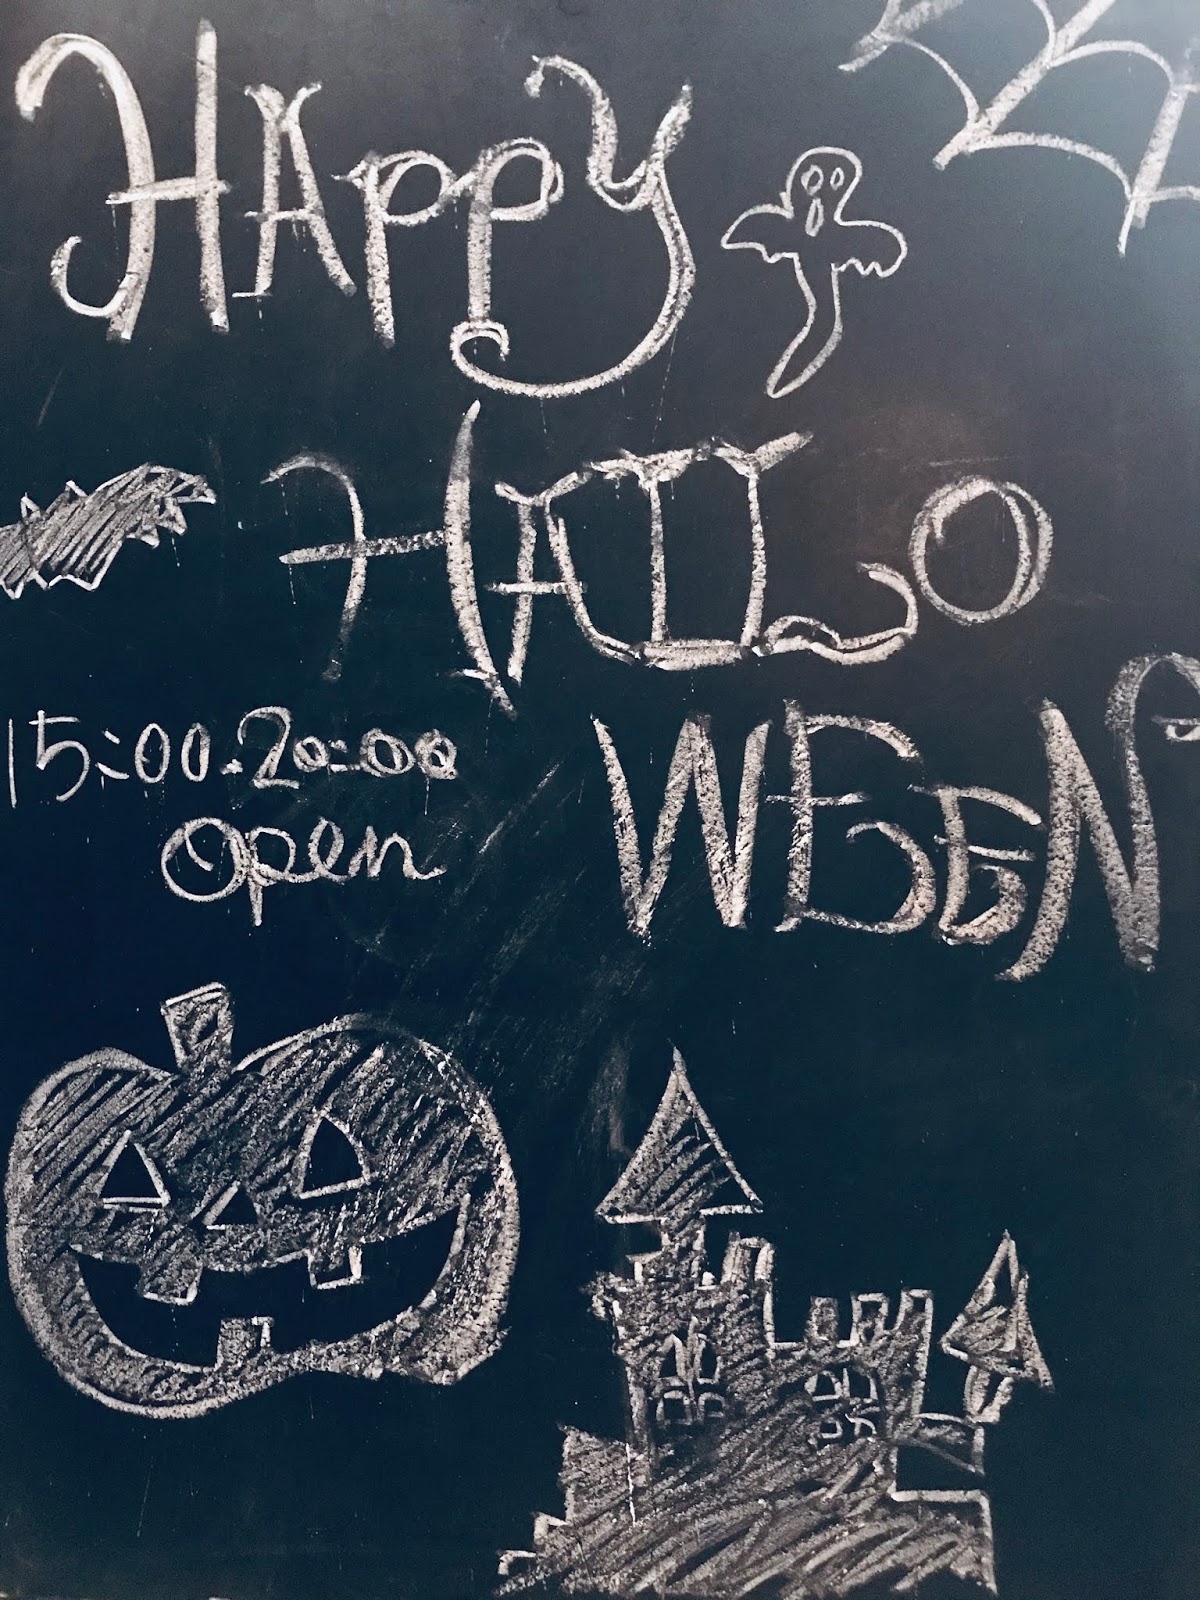 HAppy
HALLO
WEEN
15:00.20:00
Open